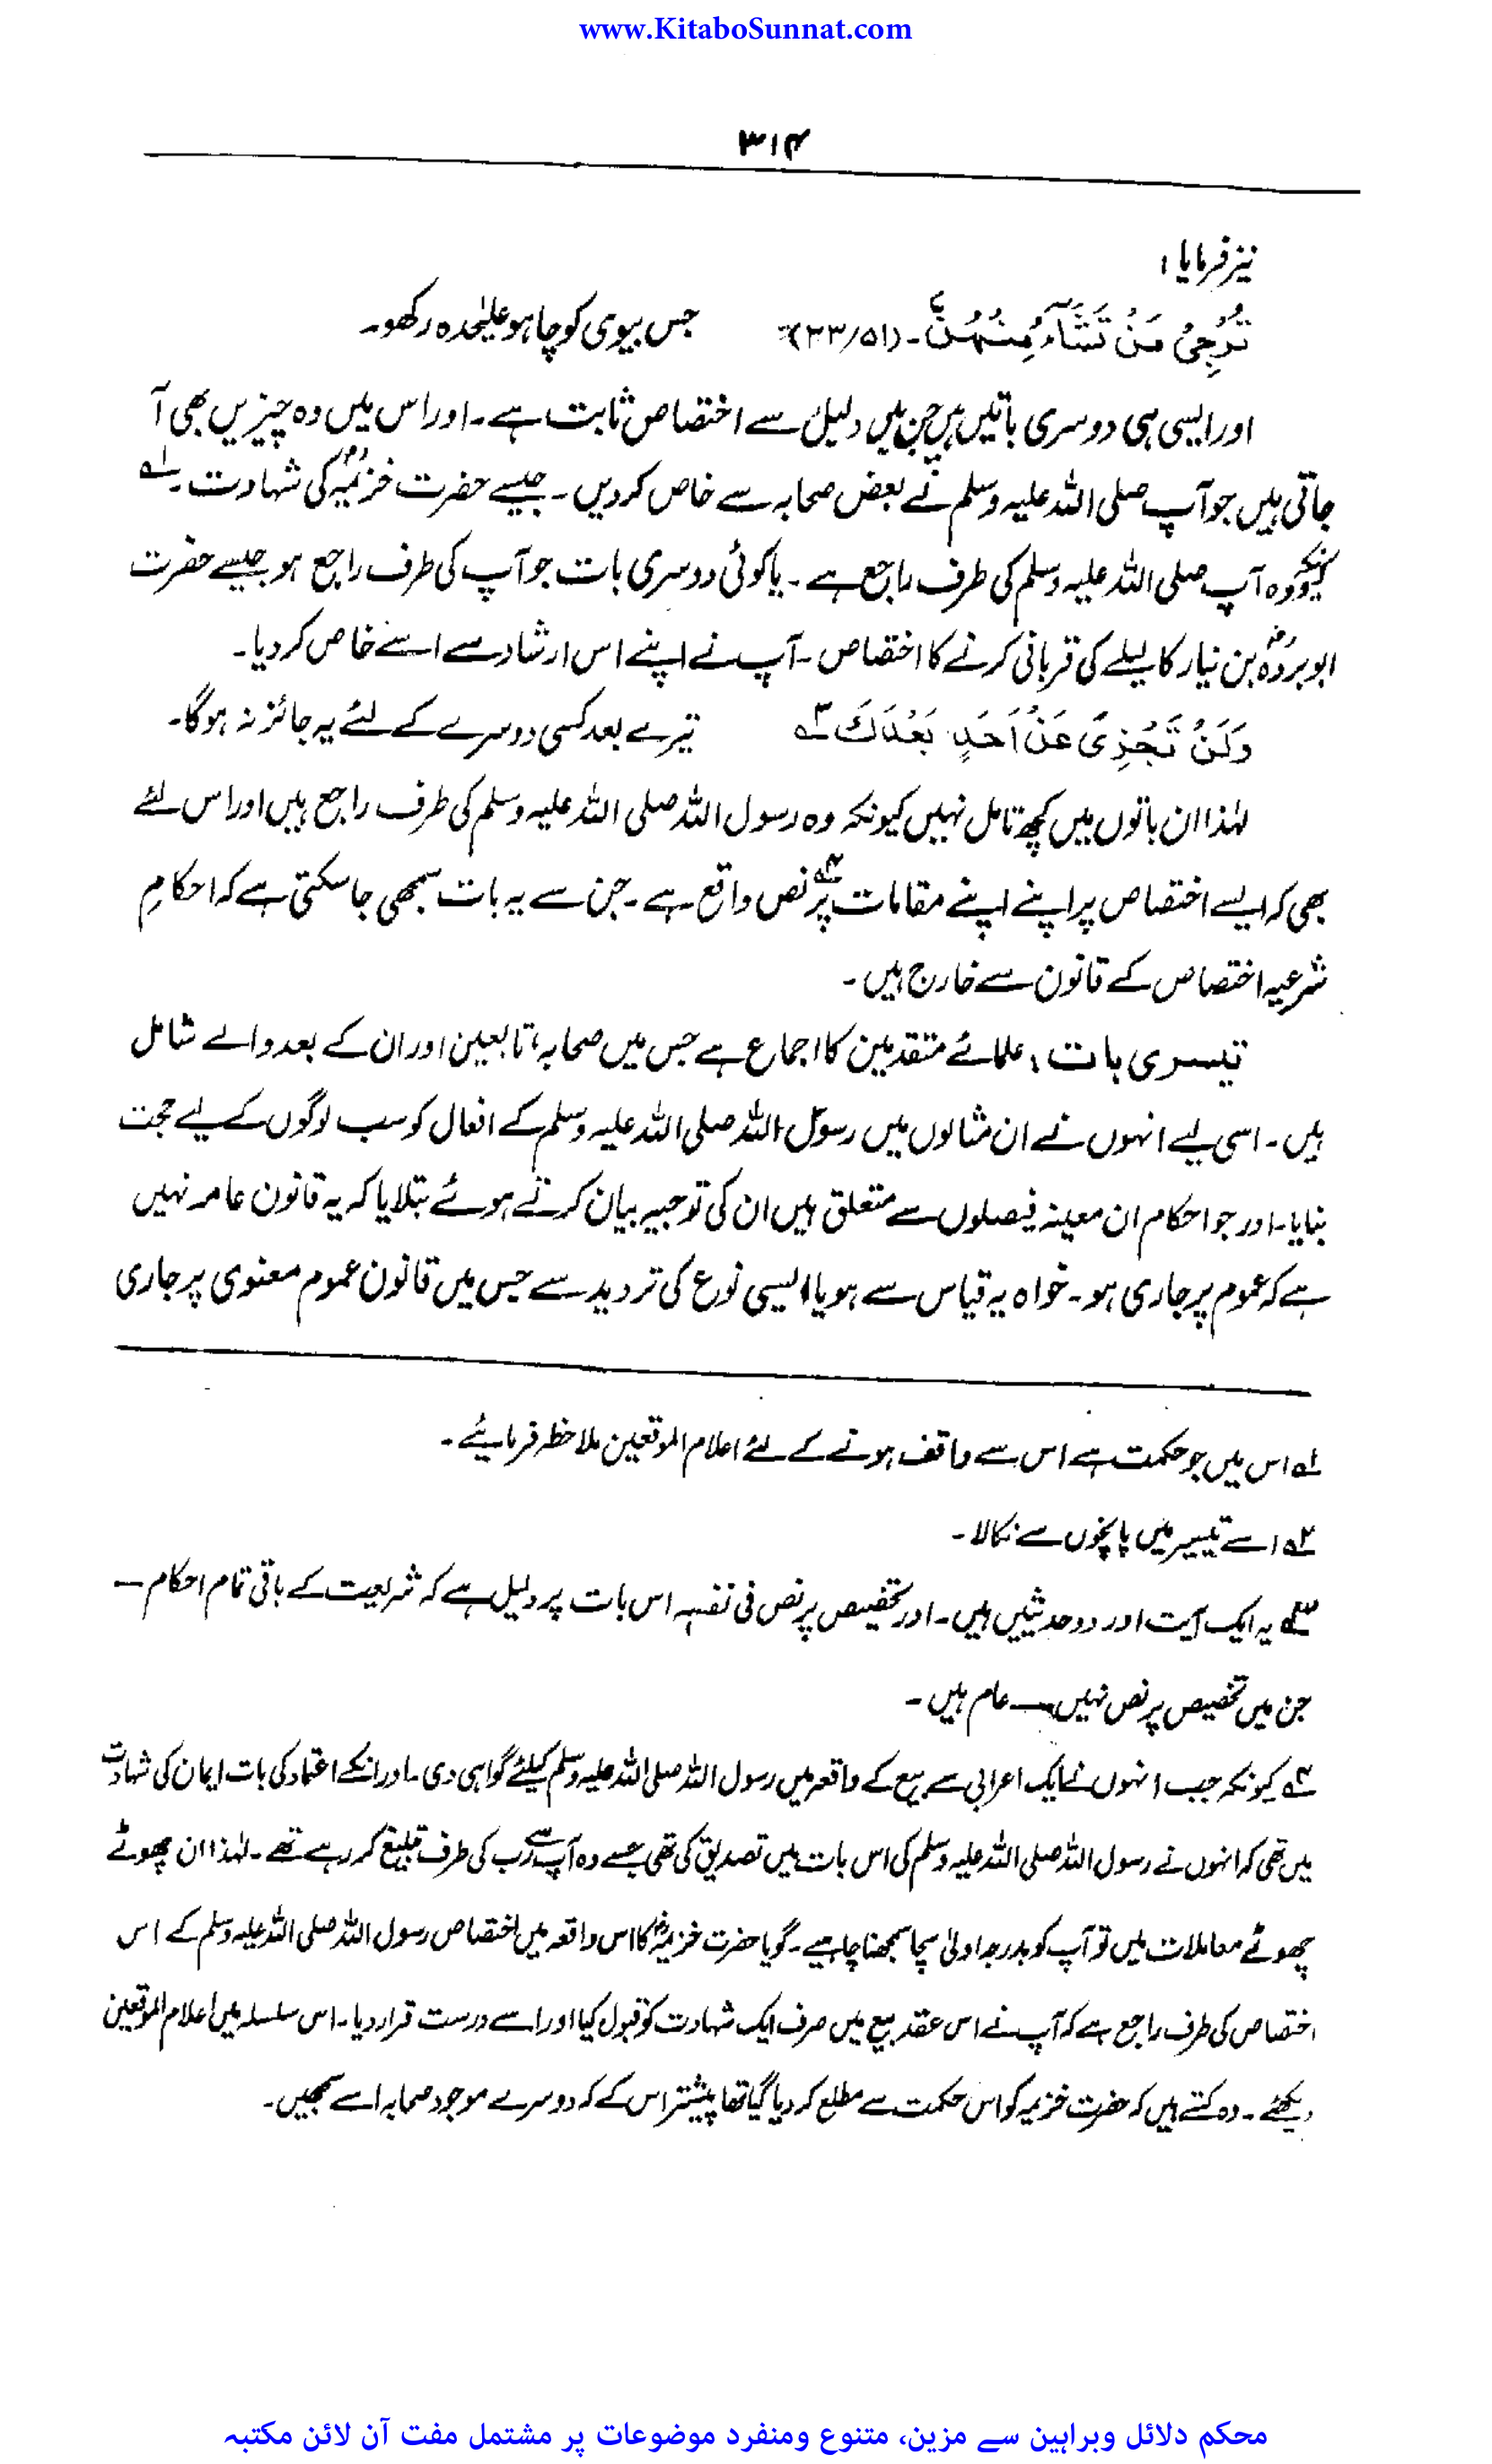 www.KitaboSunnat.com
۳۱۴
نیز فرمایا:
تُرْجِیْ مَنْ تَشَآءُ مِنْہُنَّ۔ (۳۳/۵۱) جس بیوی کو چاہو علیٰحدہ رکھو۔
اور ایسی ہی دوسری باتیں ہیں جن میں دلیل سے اختصاص ثابت ہے۔ اور اس میں وہ چیزیں بھی آ
جاتی ہیں جو آپ صلی اللہ علیہ وسلم نے بعض صحابہ سے خاص کر دیں۔ جیسے حضرت خزیمہؓ کی شہادت۔ لہ
کیونکہ وہ آپ صلی اللہ علیہ وسلم کی طرف راجع ہے۔ یا کوئی دوسری بات جو آپ کی طرف راجع ہو جیسے حضرت
ابوبردہؓ بن نیار کا لیلے کی قربانی کرنے کا اختصاص۔ آپ نے اپنے اس ارشاد سے اسے خاص کر دیا۔
وَلَنْ تَجْزِیَ عَنْ اَحَدٍ بَعْدَكَ تیرے بعد کسی دوسرے کے لئے یہ جائز نہ ہوگا۔
لہٰذا ان باتوں میں کچھ تامل نہیں کیونکہ وہ رسول اللہ صلی اللہ علیہ وسلم کی طرف راجع ہیں اور اس لئے
بھی کہ ایسے اختصاص پر اپنے اپنے مقامات پر نص واقع ہے۔ جن سے یہ بات سمجھی جا سکتی ہے کہ احکامِ
شرعیہ اختصاص کے قانون سے خارج ہیں۔
تیسری بات: علمائے متقدمین کا اجماع ہے جس میں صحابہ، تابعین اور ان کے بعد والے شامل
ہیں۔ اسی لیے انہوں نے ان مثالوں میں رسول اللہ صلی اللہ علیہ وسلم کے افعال کو سب لوگوں کے لیے حجت
بنایا۔ اور جو احکام ان معینہ فیصلوں سے متعلق ہیں ان کی توجیہ بیان کرتے ہوئے بتلایا کہ یہ قانون عامہ نہیں
ہے کہ عموم پر جاری ہو۔ خواہ یہ قیاس سے ہو یا ایسی نوع کی تردید سے جس میں قانون عموم معنوی پر جاری
لہ اس میں جو حکمت ہے اس سے واقف ہونے کے لئے اعلام الموقعین ملاحظہ فرمایئے۔
۲ہ اسے تیسیر میں پانچوں سے نکالا۔
۳ہ یہ ایک آیت اور دو حدیثیں ہیں۔ اور تخصیص پر نص فی نفسہٖ اس بات پر دلیل ہے کہ شریعت کے باقی تمام احکام —
جن میں تخصیص پر نص نہیں — عام ہیں۔
۴ہ کیونکہ جب انہوں نے ایک اعرابی سے بیع کے واقعہ میں رسول اللہ صلی اللہ علیہ وسلم کیلئے گواہی دی۔ اور انکے اعتماد کی بات ایمان کی شہادت
میں تھی کہ انہوں نے رسول اللہ صلی اللہ علیہ وسلم کی اس بات میں تصدیق کی تھی جسے وہ آپ کے رب کی طرف سے تبلیغ کر رہے تھے۔ لہٰذا ان چھوٹے
چھوٹے معاملات میں تو آپ کو بدرجہ اولیٰ سچا سمجھنا چاہیے۔ گویا حضرت خزیمہؓ کا اس واقعہ میں اختصاص رسول اللہ صلی اللہ علیہ وسلم کے اس
اختصاص کی طرف راجع ہے کہ آپ نے اس عقد بیع میں صرف ایک شہادت کو قبول کیا اور اسے درست قرار دیا۔ اس سلسلہ میں اعلام الموقعین
دیکھئے۔ وہ کہتے ہیں کہ حضرت خزیمہ کو اس حکمت سے مطلع کر دیا گیا تھا پیشتر اس کے کہ دوسرے موجود صحابہ اسے سمجھیں۔
محکم دلائل وبراہین سے مزین، متنوع ومنفرد موضوعات پر مشتمل مفت آن لائن مکتبہ